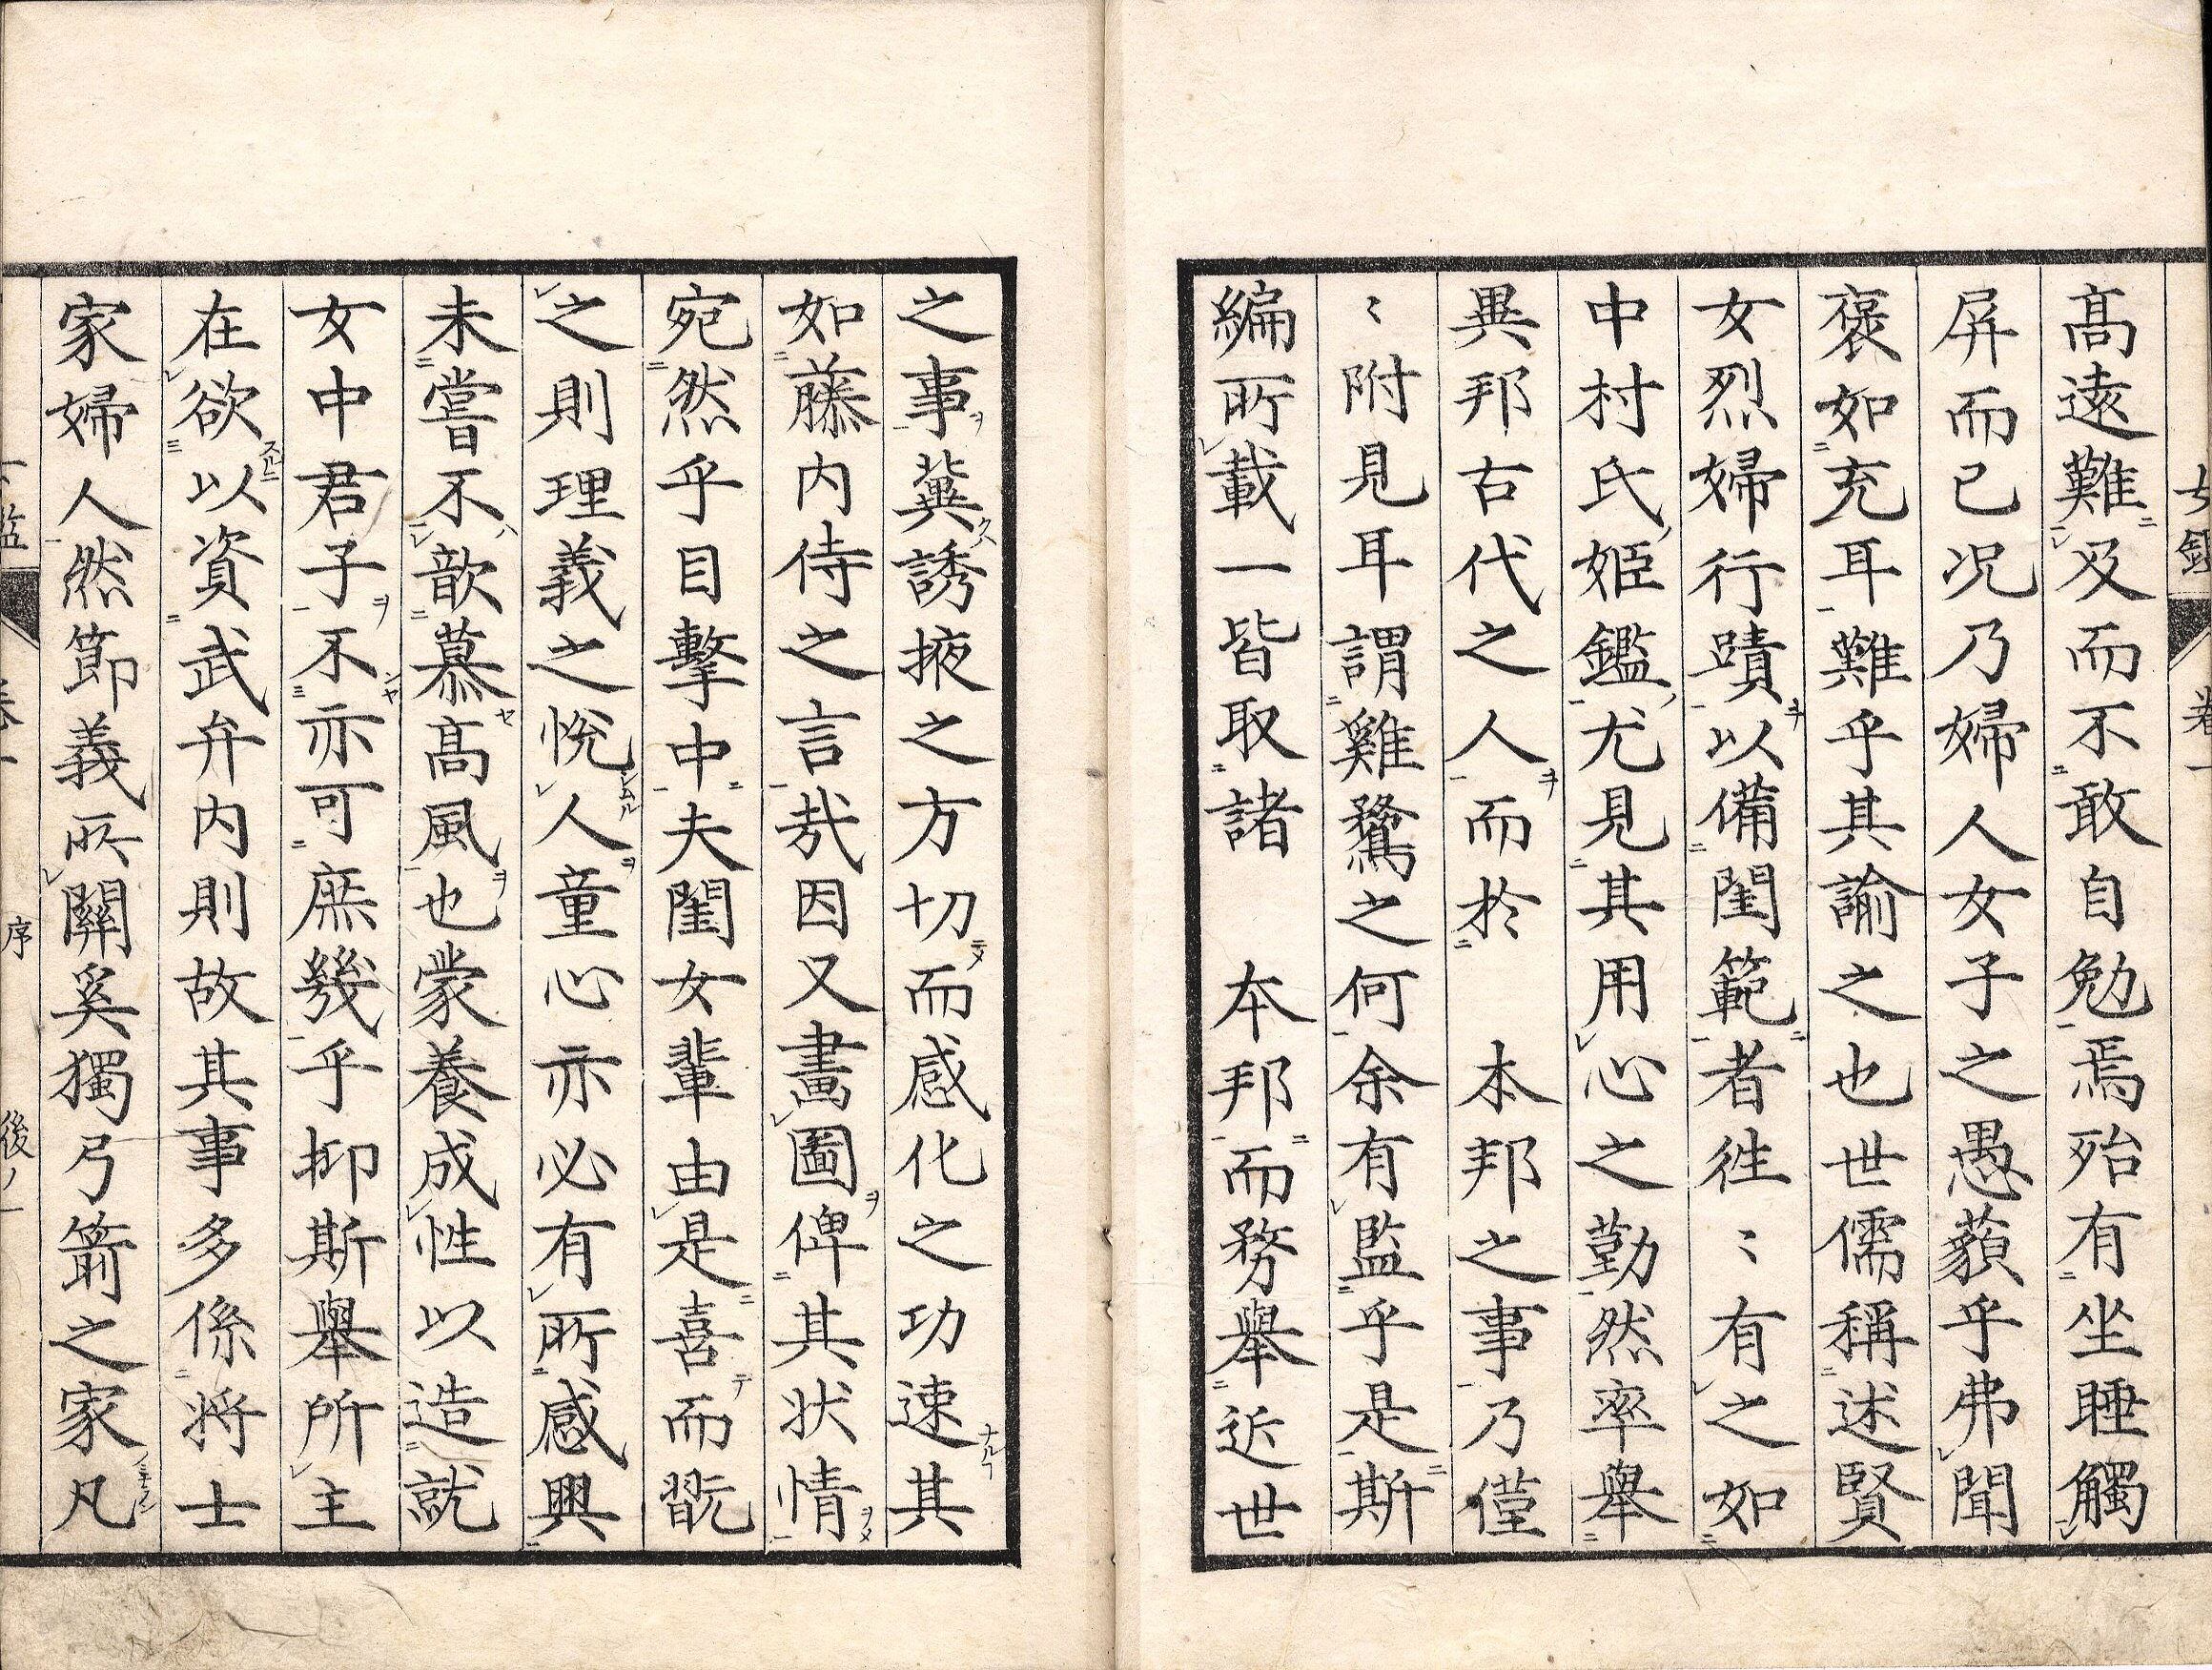 高遠難及而不敢自勉焉殆有坐睡觸
屏而已况乃婦人女子之愚藐乎弗聞
褒如充耳難乎其諭之也世儒稱述賢
女烈婦行蹟以備閨範者徃〻有之如
中村氏姬鑑尤見其用心之勤然率舉
異邦古代之人而於　本邦之事乃僅
〻附見耳謂雞鶩之何余有監乎是斯
編所載一皆取諸　本邦而務舉近世
之事冀誘掖之方切而感化之功速其
如藤内侍之言哉因又畫圖俾其状情
宛然乎目擊中夫閨女輩由是喜而翫
之則理義之悅人童心亦必有所感興
未嘗不歆慕高風也蒙養成性以造就
女中君子不亦可庶幾乎抑斯舉所主
在欲以資武弁内則故其事多係将士
家婦人然節義所關奚獨弓箭之家凡
序